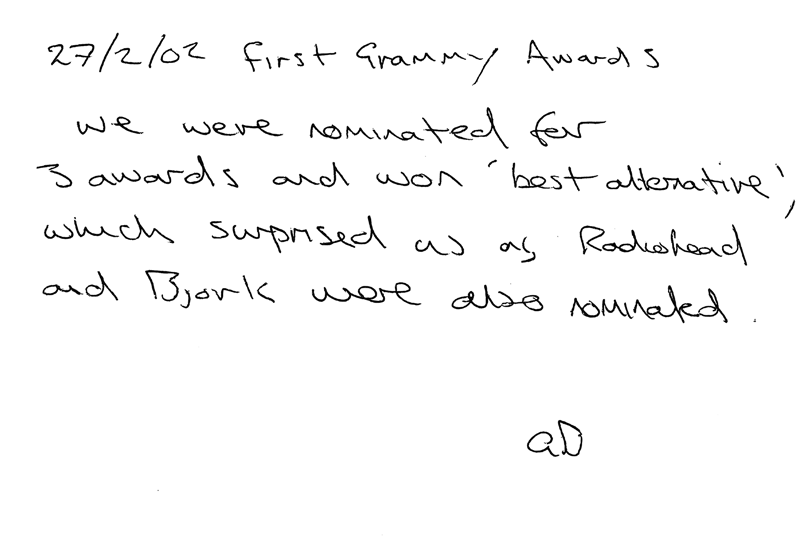 27/2/02 first Grammy Awards
we were nominated for
3 awards and won 'best alternative',
which surprised us as Radiohead
and Bjork were also nominated.
aD